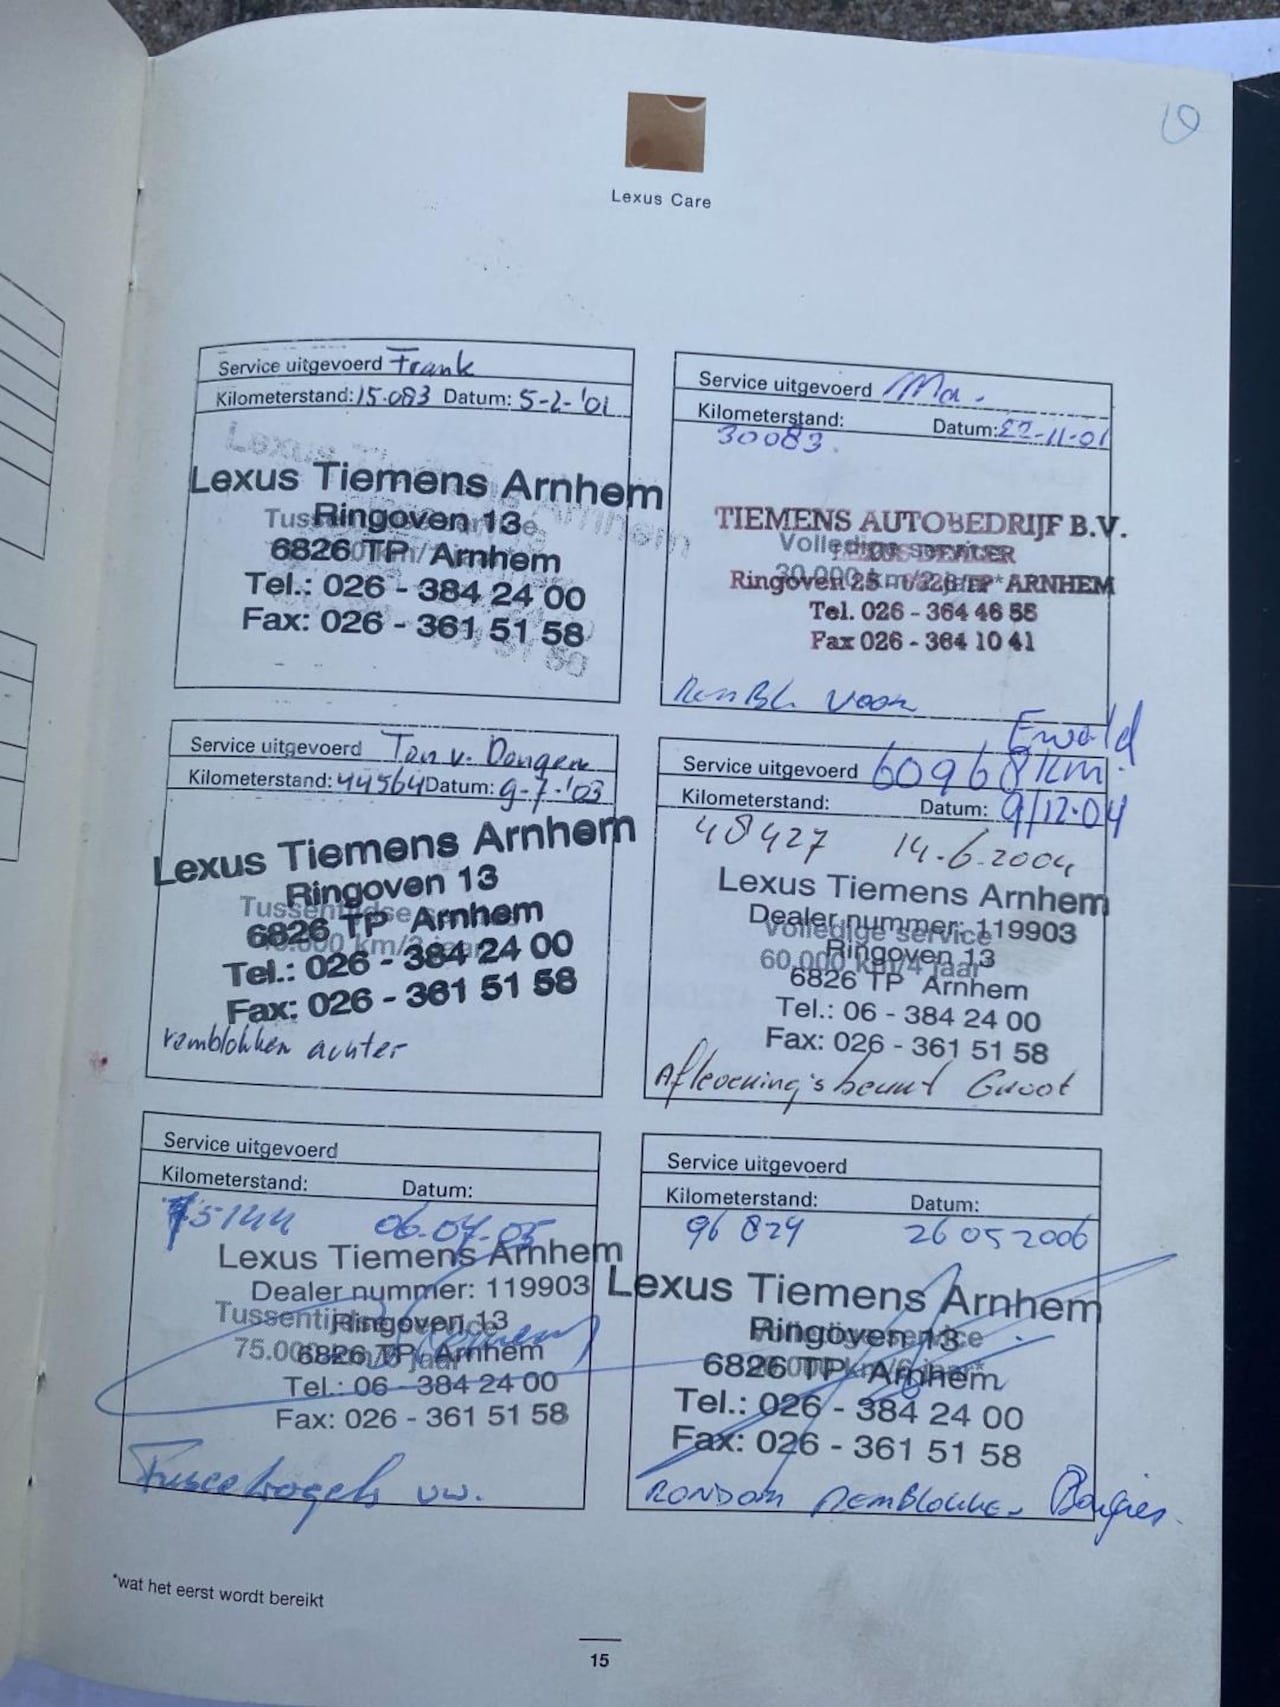 Lexus Care
Service uitgevoerd Frank
Kilometerstand: 15.083 Datum: 5-2-'01
Lexus Tiemens Arnhem
Ringoven 13
6826 TP Arnhem
Tel.: 026 - 384 24 00
Fax: 026 - 361 51 58
Service uitgevoerd
Kilometerstand: Datum: 22-11-01
30083.
TIEMENS AUTOBEDRIJF B.V.
Volledige service
DEALER
30.000 km/2 jaar*
Ringoven 25 ARNHEM
Tel. 026 - 364 46 55
Fax 026 - 364 10 41
voor
Service uitgevoerd Ton v. Dongen
Kilometerstand: 44564 Datum: 9-7-'03
Lexus Tiemens Arnhem
Ringoven 13
Tussentijdse
6826 TP Arnhem
Tel.: 026 - 384 24 00
Fax: 026 - 361 51 58
remblokken achter
Ewald
Service uitgevoerd 60968 km.
Kilometerstand: Datum: 9/12-04
48427 14-6-2004
Lexus Tiemens Arnhem
Dealer nummer: 119903
Volledige service
Ringoven 13
60.000 km/4 jaar
6826 TP Arnhem
Tel.: 06 - 384 24 00
Fax: 026 - 361 51 58
Afleverings beurt Groot
Service uitgevoerd
Kilometerstand: Datum:
75144 06-07-05
Lexus Tiemens Arnhem
Dealer nummer: 119903
Tussentijdse service
Ringoven 13
75.000 km/5 jaar
6826 TP Arnhem
Tel.: 06 - 384 24 00
Fax: 026 - 361 51 58
Fuseekogels
Service uitgevoerd
Kilometerstand: Datum:
96 824 26 05 2006
Lexus Tiemens Arnhem
Ringoven 13
Volledige service
6826 TP Arnhem
Tel.: 026 - 384 24 00
Fax: 026 - 361 51 58
RONDOM REMBLOKKEN Bougies
*wat het eerst wordt bereikt
15